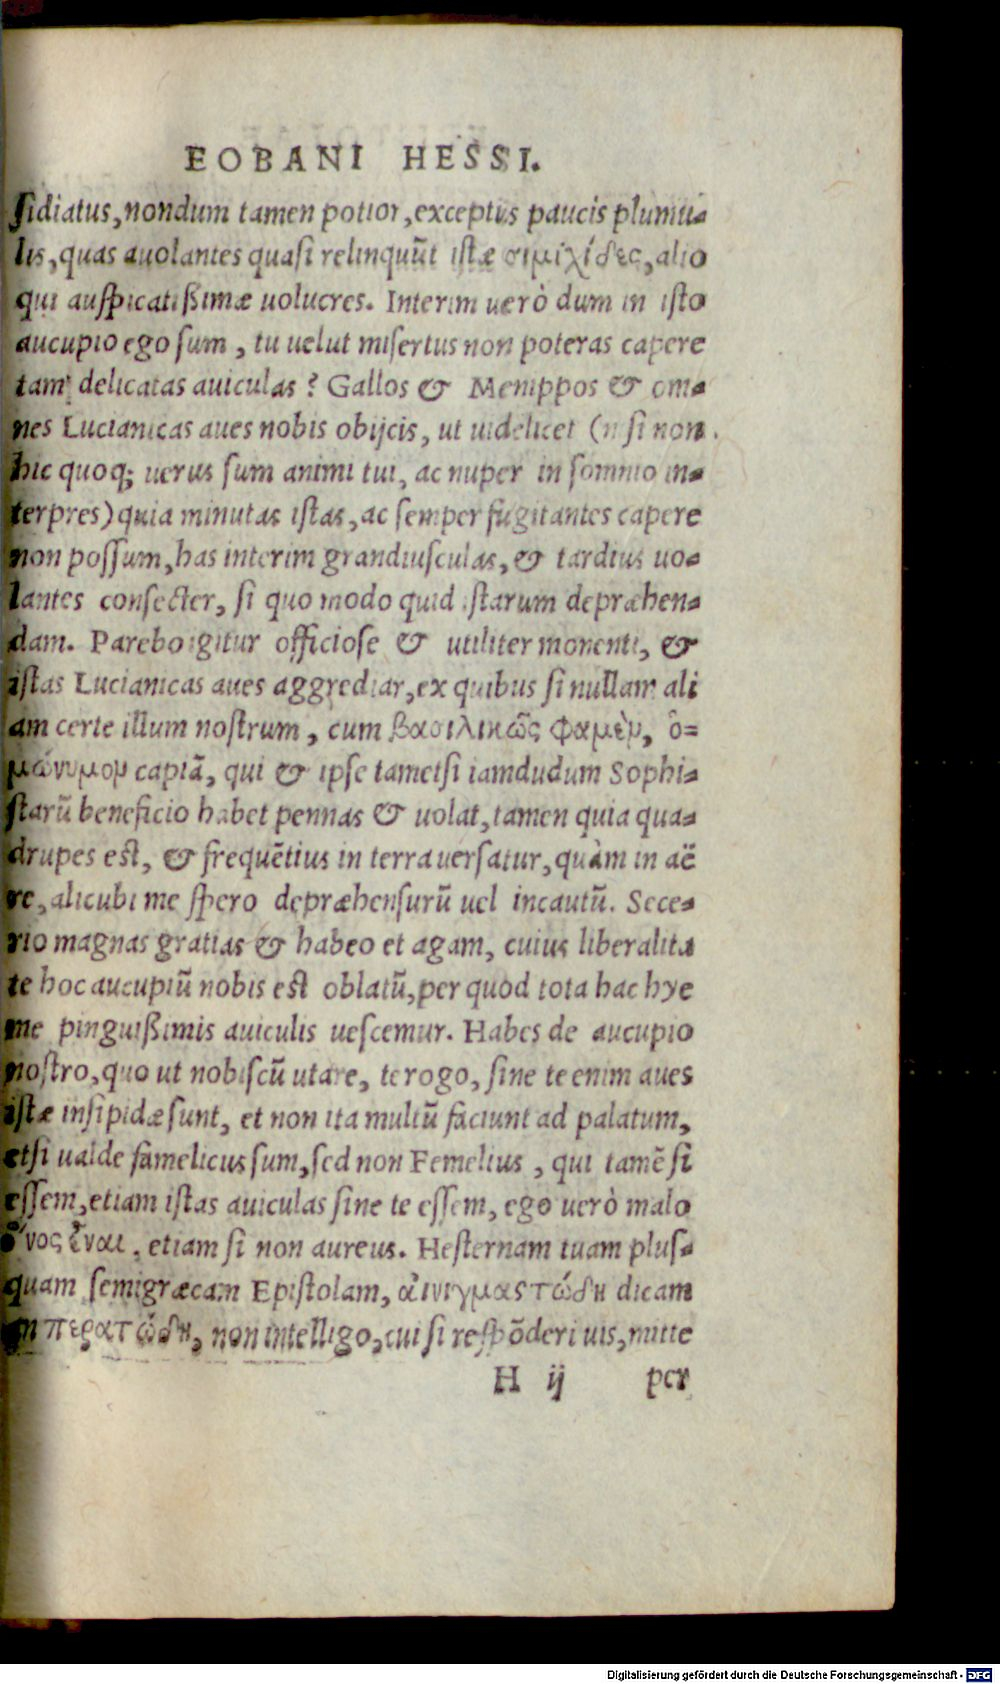 EOBANI HESSI.
sidiatus, nondum tamen potior, exceptis paucis plumu-
lis, quas auolantes quasi relinquũt istæ σιμιχίδες, alio
qui auspicatißimæ uolucres. Interim uerò dum in isto
aucupio ego sum, tu uelut misertus non poteras capere
tam delicatas auiculas? Gallos & Menippos & om-
nes Lucianicas aues nobis obijcis, ut uidelicet (nisi non
hic quoq; uerus sum animi tui, ac nuper in somnio in-
terpres) quia minutas istas, ac semper fugitantes capere
non possum, has interim grandiusculas, & tardius uo-
lantes consecter, si quo modo quid istarum depræhen-
dam. Parebo igitur officiose & utiliter monenti, &
istas Lucianicas aues aggrediar, ex quibus si nullam ali
am certe illum nostrum, cum βασιλικῶς φαμὲν, ὁ-
μώνυμον capiã, qui & ipse tametsi iamdudum Sophi-
starũ beneficio habet pennas & uolat, tamen quia qua-
drupes est, & frequẽtius in terra uersatur, quàm in aë
re, alicubi me spero depræhensurũ uel incautũ. Sece-
rio magnas gratias & habeo et agam, cuius liberalita
te hoc aucupiũ nobis est oblatũ, per quod tota hac hye
me pinguißimis auiculis uescemur. Habes de aucupio
nostro, quo ut nobiscũ utare, te rogo, sine te enim aues
istæ insipidæ sunt, et non ita multũ faciunt ad palatum,
etsi ualde famelicus sum, sed non Femelius, qui tamẽ si
essem, etiam istas auiculas sine te essem, ego uerò malo
ὄνος εἶναι, etiam si non aureus. Hesternam tuam plus-
quam semigræcam Epistolam, αἰνιγμαστώδη dicam
an περατώδη, non intelligo, cui si respõderi uis, mitte
H ij per
Digitalisierung gefördert durch die Deutsche Forschungsgemeinschaft - DFG